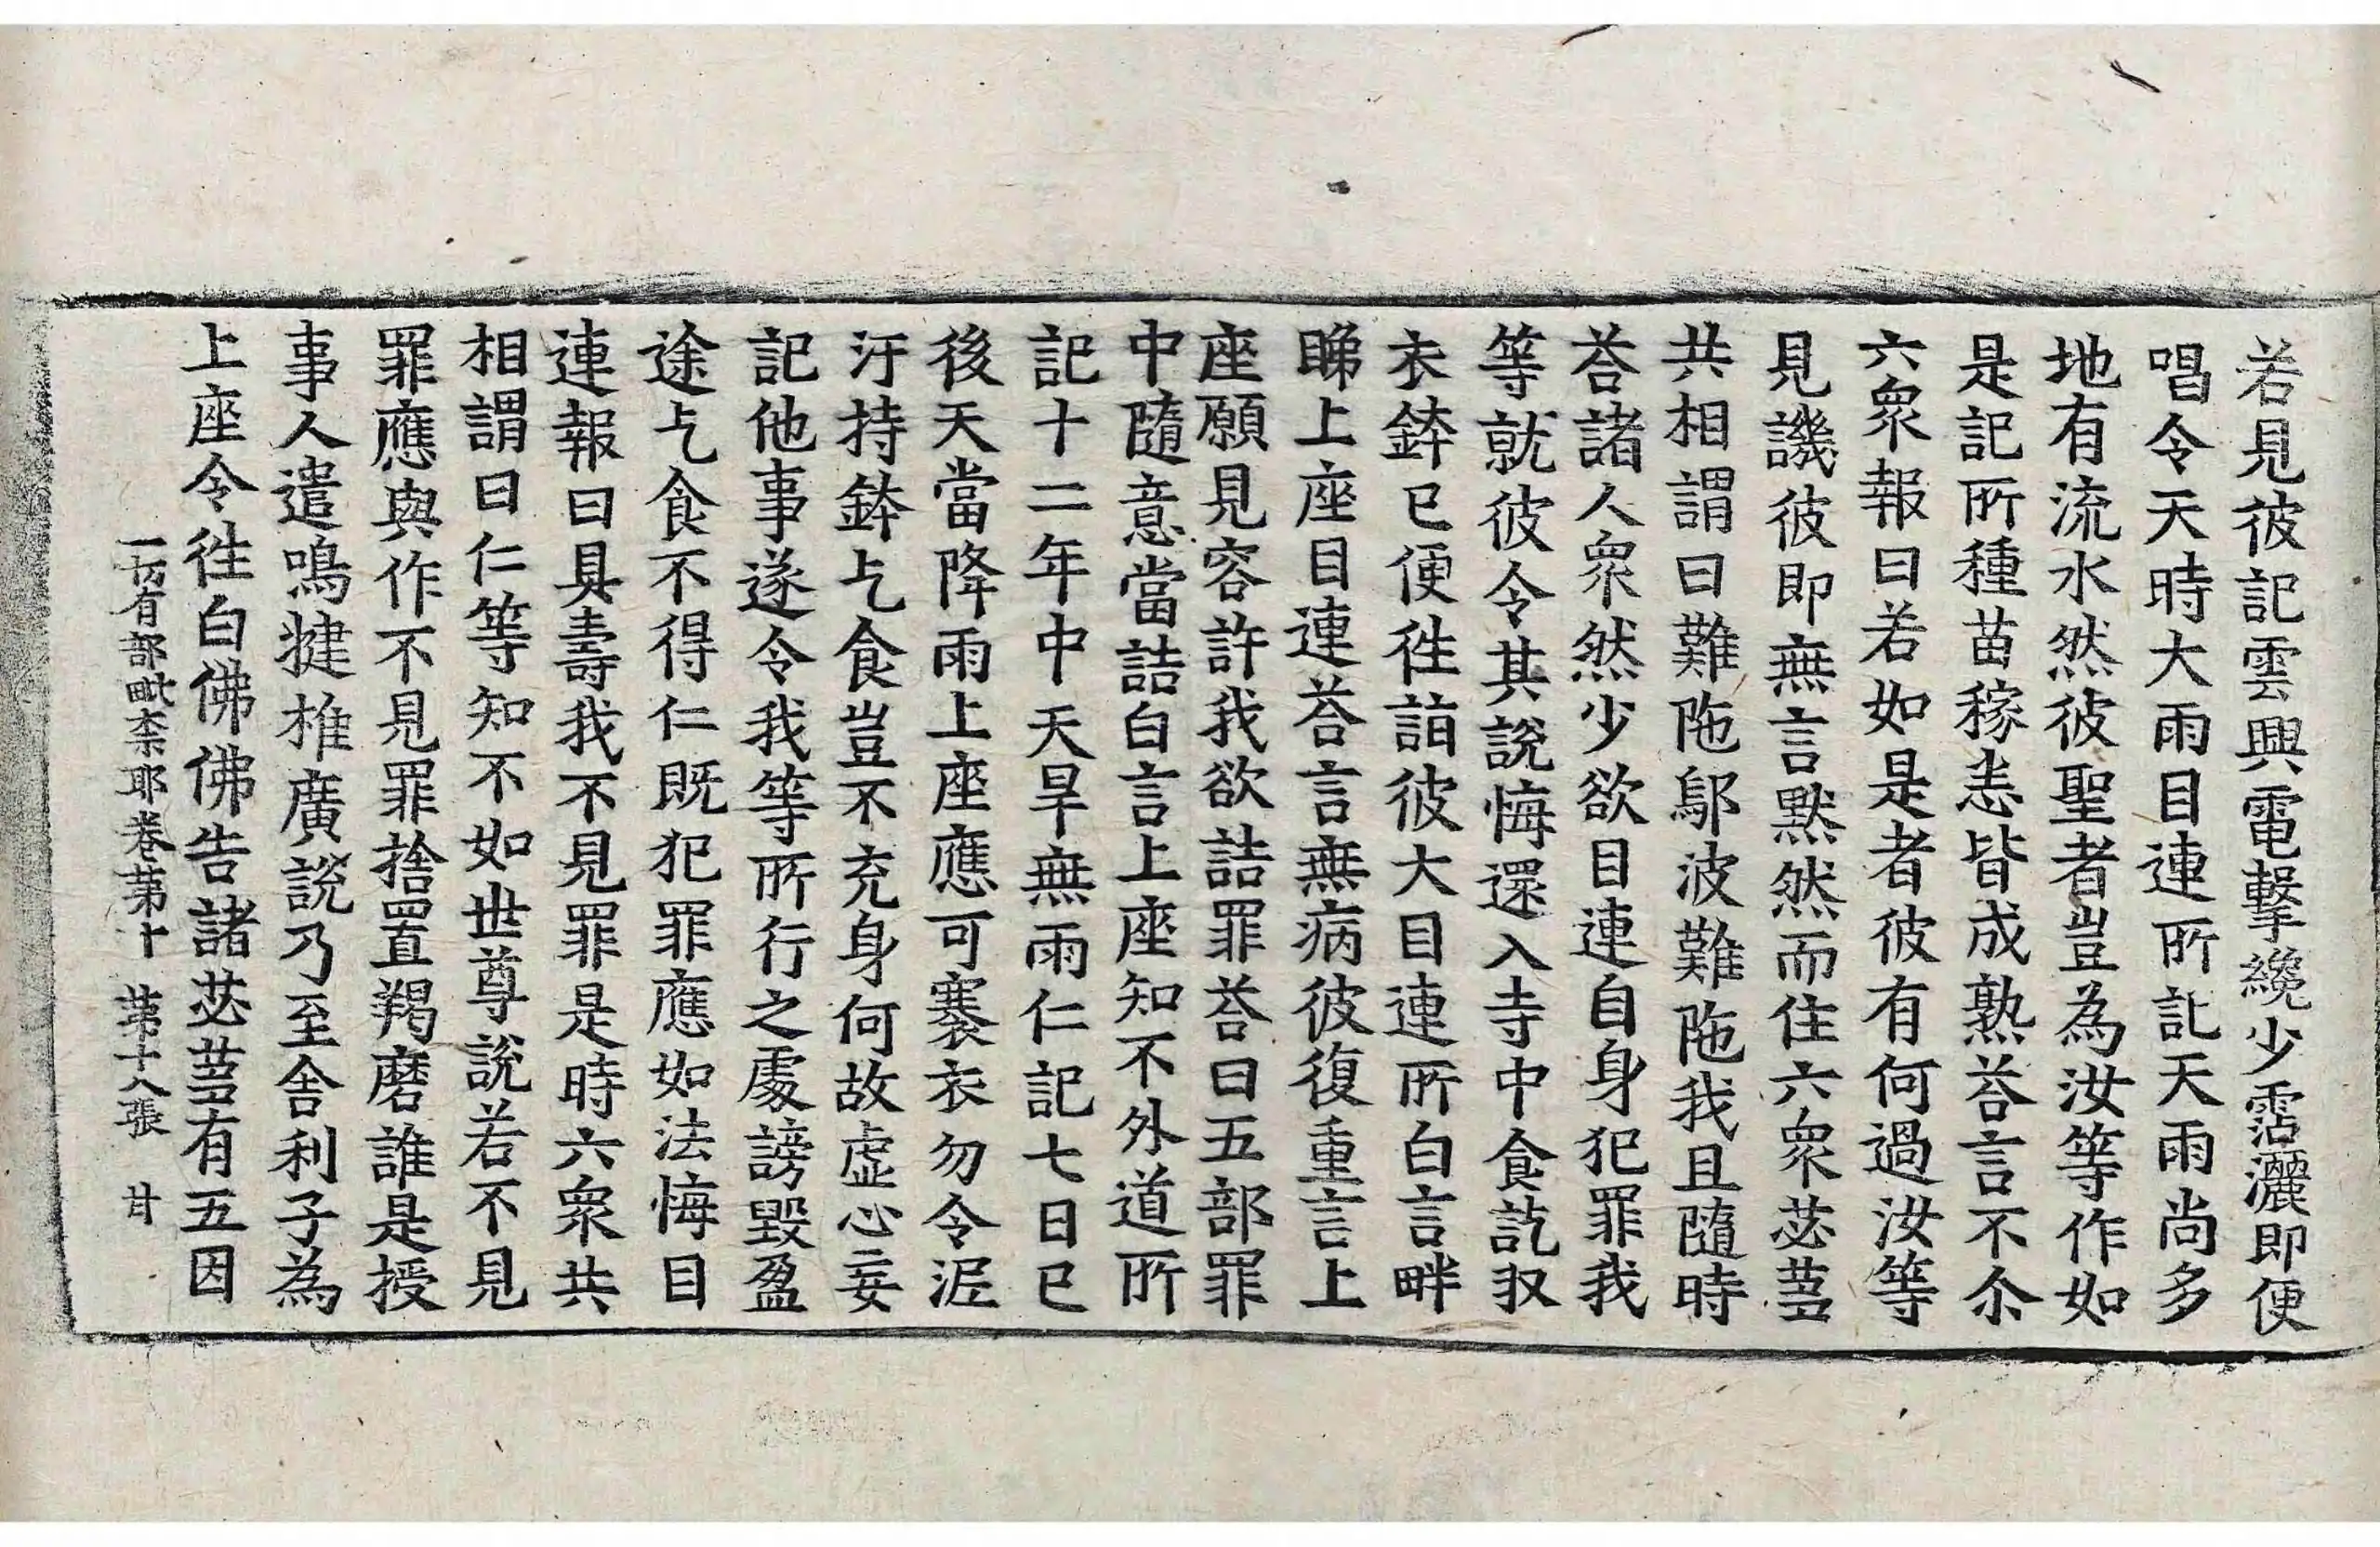 若見彼記雲興電擊纔少霑灑即便
唱令天時大雨目連所記天雨尚多
地有流水然彼聖者豈為汝等作如
是記所種苗稼恙皆成熟荅言不尒
六衆報曰若如是者彼有何過汝等
見譏彼即無言黙然而住六衆苾蒭
共相謂曰難陁鄔波難陁我且隨時
荅諸人衆然少欲目連自身犯罪我
等就彼令其說悔還入寺中食訖収
衣鉢已便徃詣彼大目連所白言畔
睇上座目連荅言無病彼復重言上
座願見容許我欲詰罪荅曰五部罪
中隨意當詰白言上座知不外道所
記十二年中天旱無雨仁記七日已
後天當降雨上座應可褰衣勿令泥
汙持鉢乞食豈不充身何故虛心妄
記他事遂令我等所行之處謗毀盈
途乞食不得仁既犯罪應如法悔目
連報曰具壽我不見罪是時六衆共
相謂曰仁等知不如世尊說若不見
罪應與作不見罪捨置羯磨誰是授
事人遣鳴揵椎廣說乃至舍利子為
上座令徃白佛佛告諸苾蒭有五因
一切有部毗奈耶卷第十　第十八張　甘